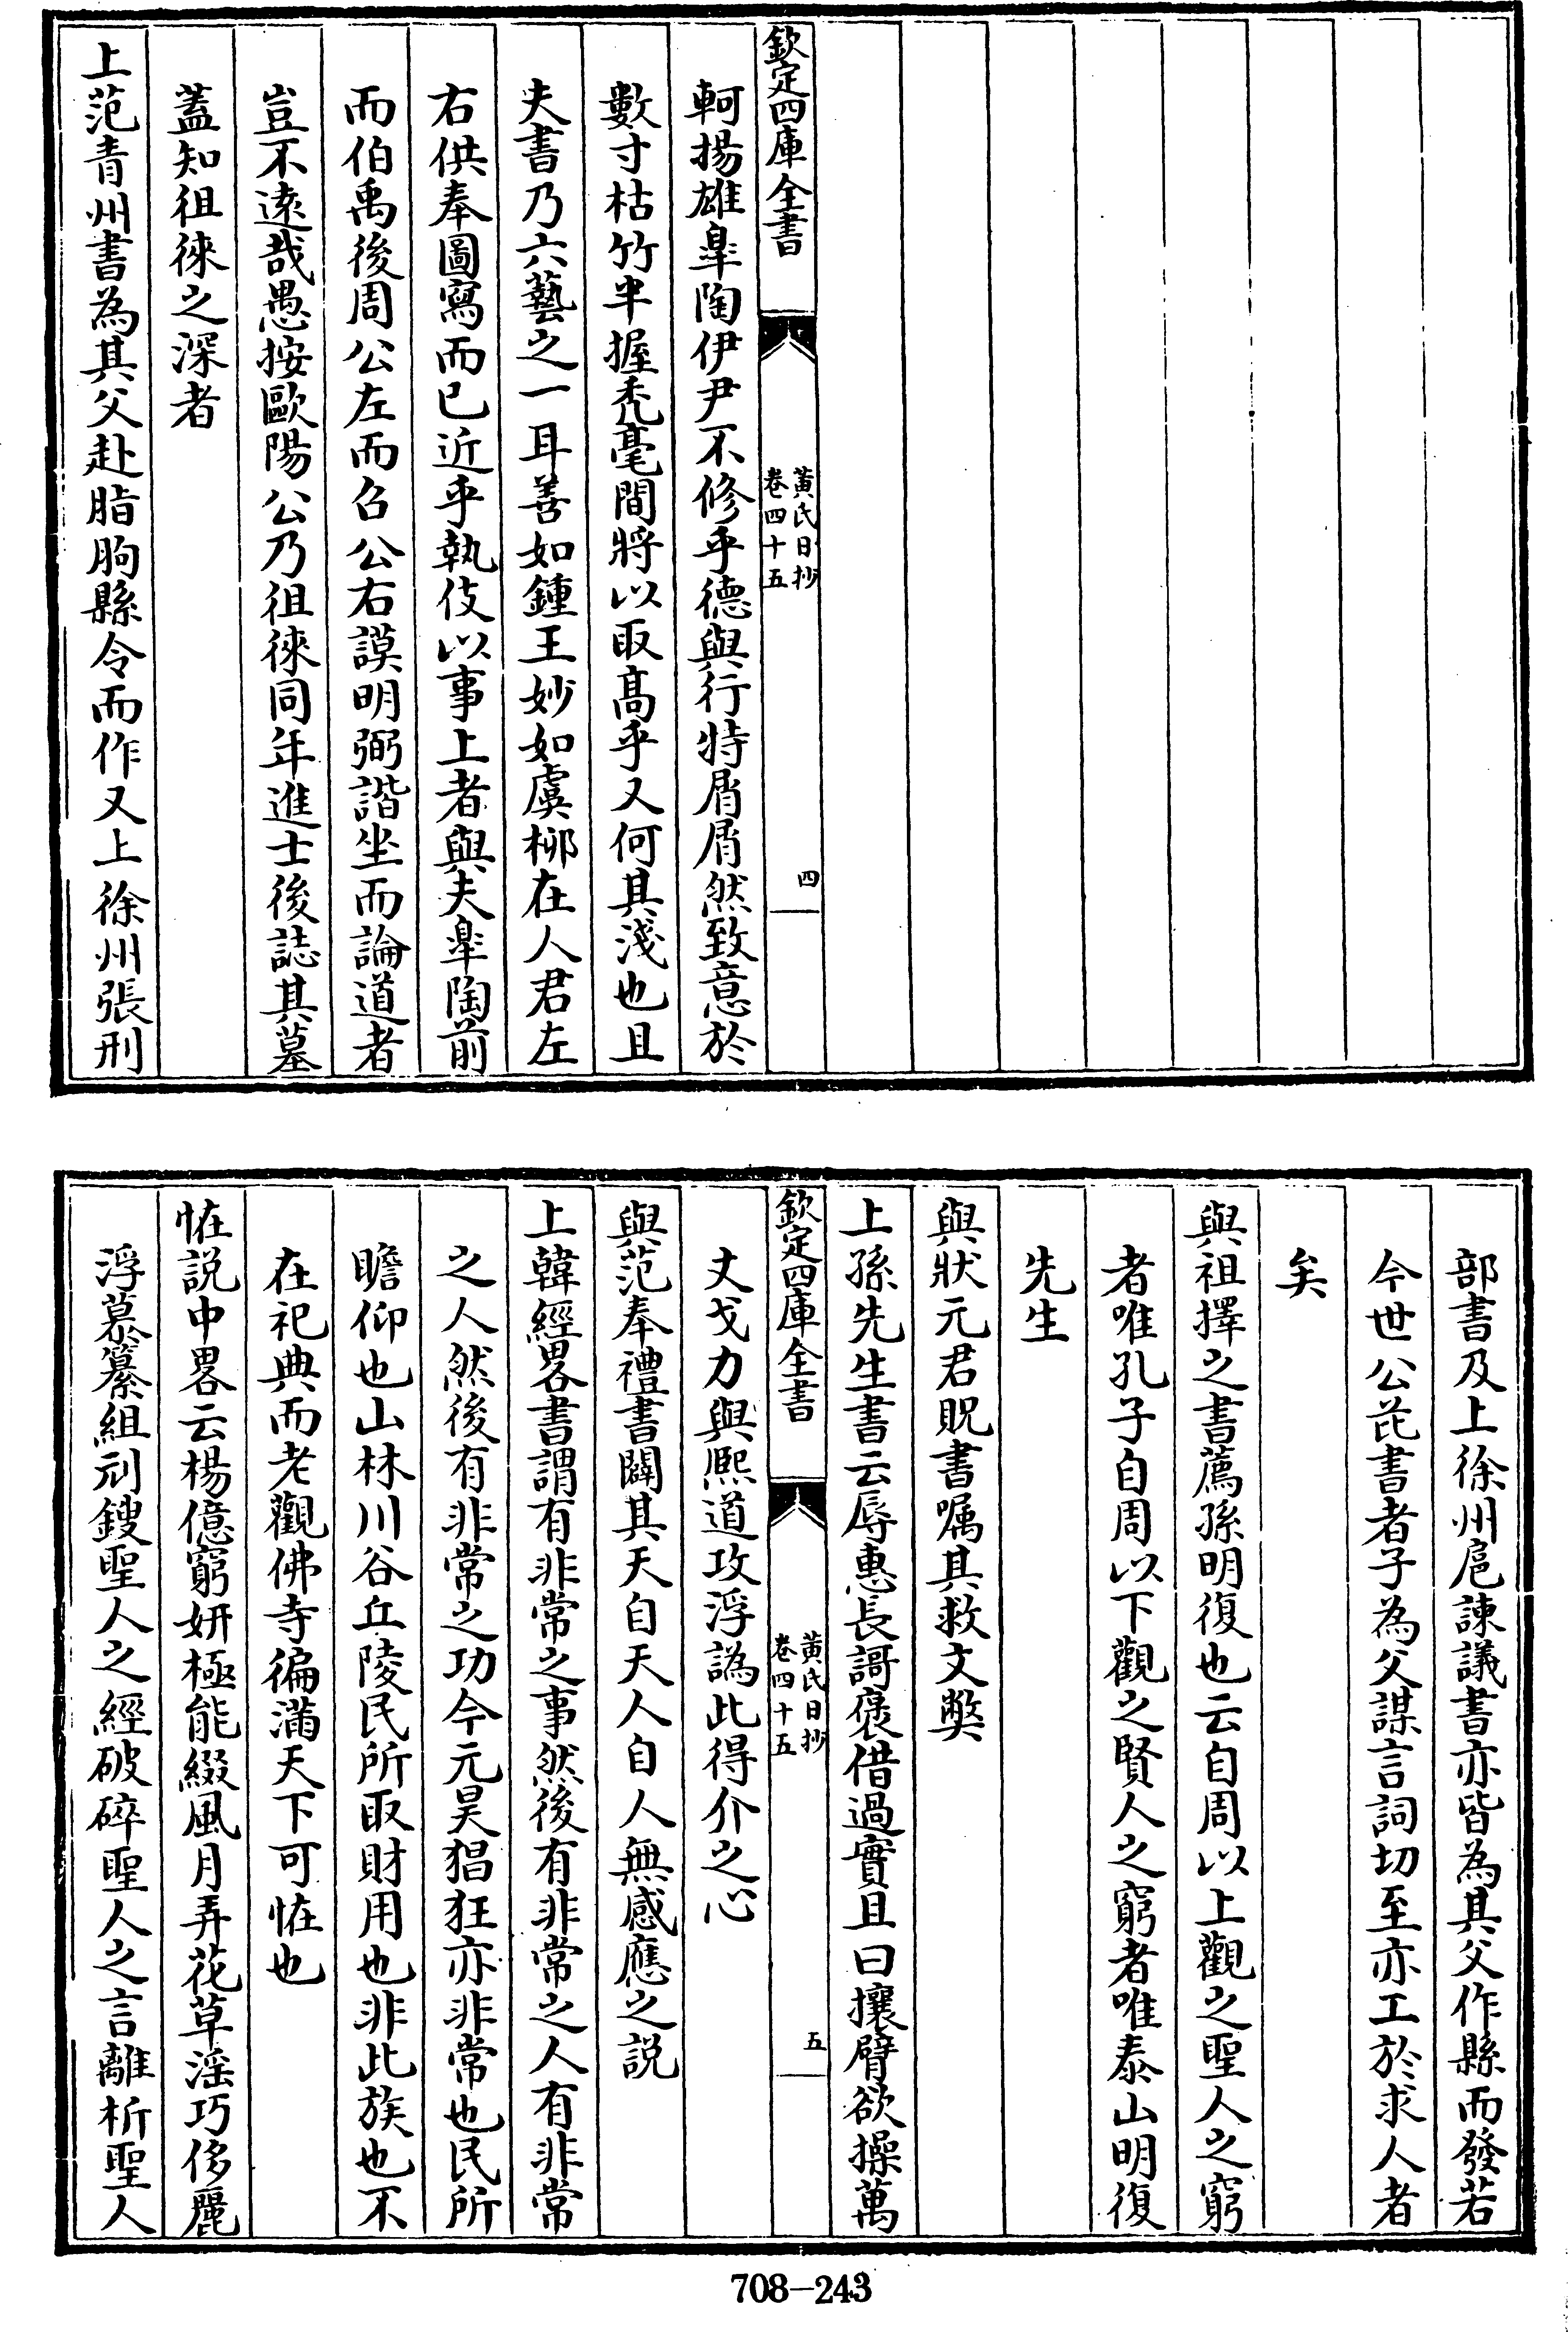 欽定四庫全書
黃氏日抄
卷四十五
四
軻揚雄臯陶伊尹不修乎德與行特屑屑然致意於
數寸枯竹半握秃毫間將以取髙乎又何其淺也且
夫書乃六藝之一耳善如鍾王妙如虞柳在人君左
右供奉圖寫而已近乎執伎以事上者與夫臯陶前
而伯禹後周公左而召公右謨明弼諧坐而論道者
豈不遠哉愚按歐陽公乃徂徠同年進士後誌其墓
蓋知徂徠之深者
上范青州書為其父赴脂朐縣令而作又上徐州張刑
部書及上徐州扈諫議書亦皆為其父作縣而發若
今世公茋書者子為父謀言詞切至亦工於求人者
矣
與祖擇之書薦孫明復也云自周以上觀之聖人之窮
者唯孔子自周以下觀之賢人之窮者唯泰山明復
先生
與狀元君貺書嘱其救文弊
上孫先生書云辱惠長謌褒借過實且曰攘臂欲操萬
欽定四庫全書
黃氏日抄
卷四十五
五
丈戈力與熈道攻浮譌此得介之心
與范奉禮書闢其天自天人自人無感應之説
上韓經畧書謂有非常之事然後有非常之人有非常
之人然後有非常之功今元昊猖狂亦非常也民所
瞻仰也山林川谷丘陵民所取財用也非此族也不
在祀典而老觀佛寺徧滿天下可怪也
怪説中畧云楊億窮妍極能綴風月弄花草淫巧侈麗
浮慕纂組刓鎪聖人之經破碎聖人之言離析聖人
708-243